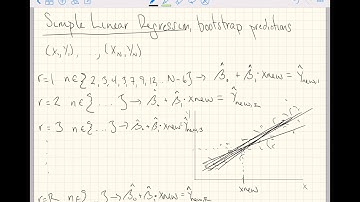 Simple Linear Regression, bootstrap predictions
(x₁,Y₁), . . . , (X_N,Y_N)
r=1 n∈{2, 5, 4, 3, 7, 9, 12, ... N-6} → β̂₀ + β̂₁·xnew = Ŷnew,1
r=2 n∈{ ... } → β̂₀ + β̂₁·xnew = Ŷnew,2
r=3 n∈{ ... } → β̂₀+β̂₁·xnew=Ŷnew,3
xnew
x
r=R n∈{ ... } → β̂₀+β̂₁·xnew=Ŷnew,R